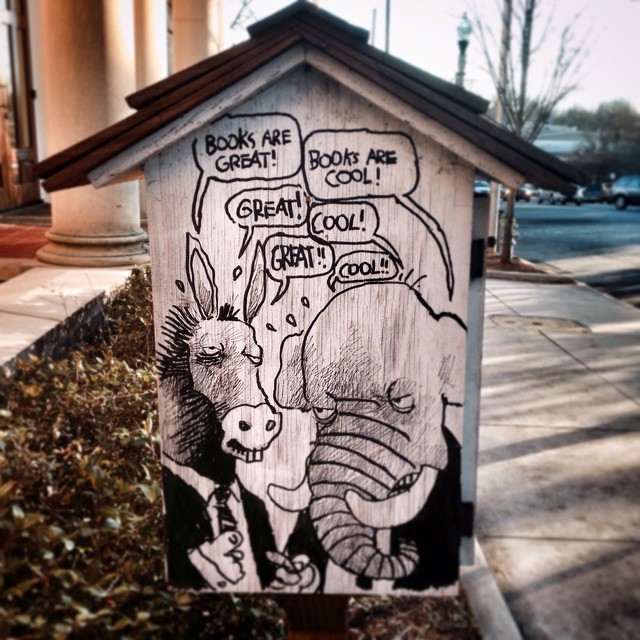 BOOKS ARE
GREAT!
BOOKS ARE
COOL!
GREAT!
COOL!
GREAT!!
COOL!!